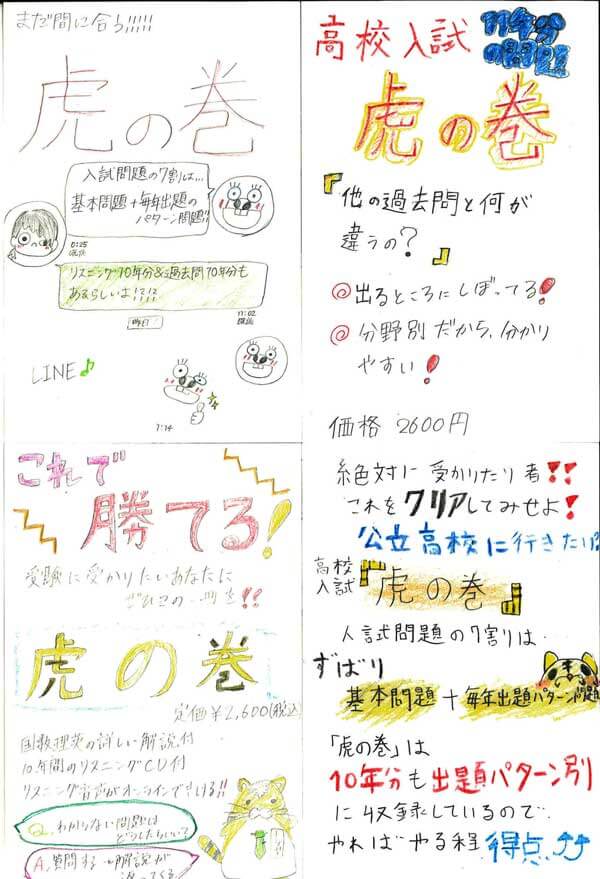 まだ間に合う!!!!!
虎の巻
入試問題の7割は…
基本問題+毎年出題の
パターン問題!!
リスニング10年分&過去問10年分も
あるらしいよ!?!?
昨日
LINE♪
7:14
高校入試
11年分
虎の巻
『他の過去問と何が
違うの?』
◎出るところにしぼってる!
◎分野別だから、分かり
やすい!
価格 2600円
これで
勝てる!
受験に受かりたいあなたに
ぜひこの一冊を!!
虎の巻
定価¥2,600(税込)
国数理英の詳しい解説付
10年間のリスニングCD付
リスニング音声がオンラインできける!!
Q.わからない問題は
どうしたらいい?
A.質問すると解説が
返ってくる
絶対に受かりたり者!!
これをクリアしてみせよ!
公立高校に行きたい?
高校
入試
『虎の巻』
入試問題の7割りは
ずばり
基本問題+毎年出題パターン問題
「虎の巻」は
10年分も出題パターン別
に収録しているので
やればやる程得点⤴⤴